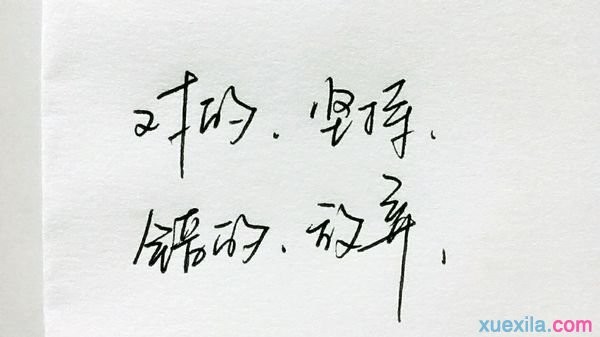 对的、坚持、
错的、放弃、
xuexila.com